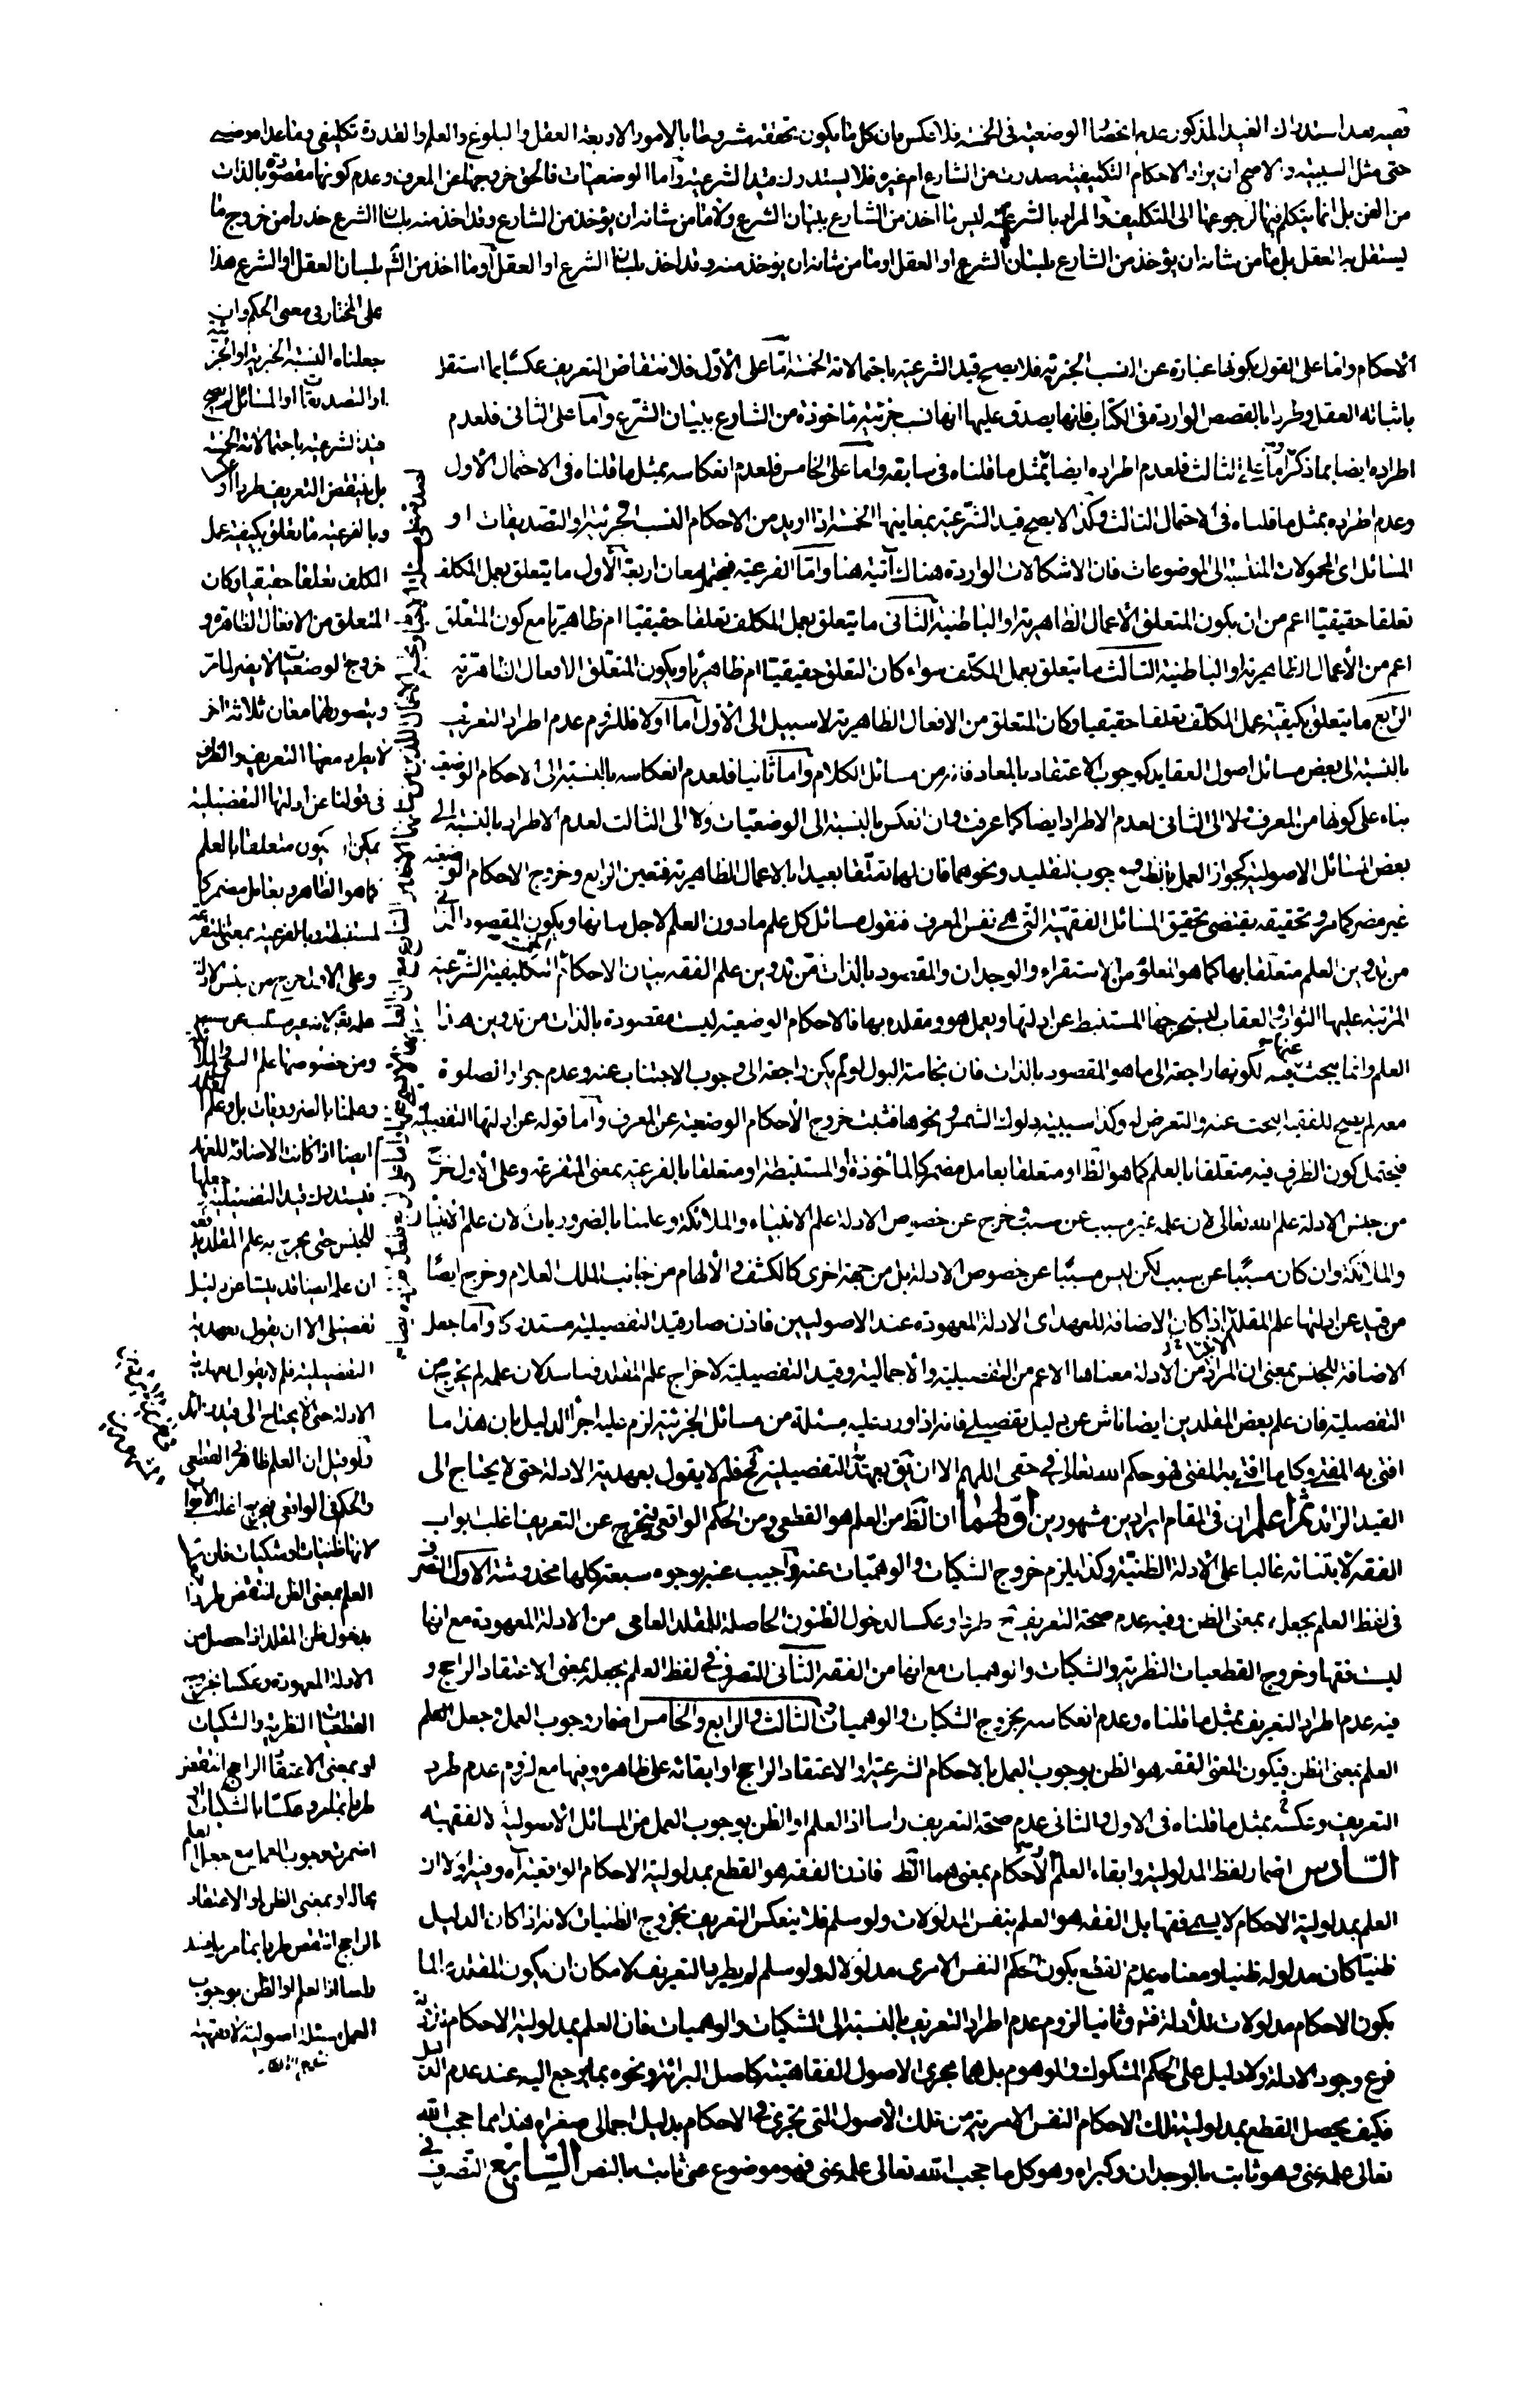 فيه بعد استدراك القيد المذكور عدم انحصار الوضعية فى الخمسة فلا تنعكس بان كل ما يكون تحققه مشروطا بالامور الاربعة العقل والبلوغ والعلم والقدرة تكليفى وما عداه وضعى
حتى مثل السببية والاصح ان يراد الاحكام التكليفية صدرت من الشارع ام غيره فلا يستدرك قيد الشرعية واما الوضعيات فالحق خروجها عن المعرف وعدم كونها مقصودة بالذات
من الفن بل انما يتكلم فيها لرجوعها الى التكليف والمراد بالشرعية ليس ما اخذ من الشارع بلسان الشرع ولا ما من شانه ان يؤخذ من الشارع وقد اخذ منه بلسان الشرع حذرا من خروج ما
يستقل به العقل بل ما من شانه ان يؤخذ من الشارع بلسان الشرع او العقل او ما من شانه ان يؤخذ منه وقد اخذ بلسان الشرع او العقل او ما اخذ من الش بلسان العقل او الشرع هذا
على المختار فى معنى الحكم وان
جعلناه النسبة الخبرية او الجزئية
او التصديقات او المسائل لم يصح
قيد الشرعية باحتمالاته الخمسة
بل ينتقض التعريف طردا او عكسا
وبالفرعية ما تعلق بكيفية عمل
المكلف تعلقا حقيقيا وكان
المتعلق من الافعال الظاهرة و
خروج الوضعيات لا يضر لما مر
ويتصور لها معان ثلاثة اخر
لا يطرد معها التعريف والظرف
فى قولنا عن ادلتها التفصيلية
يمكن ان يكون متعلقا بالعلم
كما هو الظاهر وبعامل مضمر كا
لمستنبطة وبالفرعية بمعنى المتفرعة
وعلى الاول خرج من جنس الادلة
علمه تعالى لانه غير مسبب عن سبب
ومن خصوصها علم النبى والملائكة
وعلمنا بالضروريات بل وعلم المقلد
ايضا اذا كانت الاضافة للعهد
فيستدرك قيد التفصيلية وجعلها
للجنس حتى يخرج به علم المقلد فيه
ان علمه ايضا قد ينشا عن دليل
تفصيلى الا ان يقول بعهدية
التفصيلية فلم لا يقول بعهدية
الادلة حتى لا يحتاج الى قيد زائد
ولو قيل ان العلم ظاهر فى القطعى
والحكم فى الواقعى فيخرج اغلب الابواب
لانها ظنيات او شكيات فان
العلم بمعنى الظن لننتقض طردا
بدخول ظن المقلد اذا حصل من
الادلة المعهودة وعكسا بخروج
القطعيات النظرية والشكيات
او بمعنى الاعتقاد الراجح انتقض
طردا بما مر وعكسا بالشكيات
اضمرت وجوب العمل مع جعل العلم
بحاله او بمعنى الظن او الاعتقاد
الراجح انتقض طردا بما مر
راسا اذ العلم او الظن بوجوب
العمل مسئلة اصولية لا فقهية
الاحكام واما على القول بكونها عبارة عن النسب الجزئية فلا يصح قيد الشرعية باحتمالاته الخمسة اما على الاول فلانتقاض التعريف عكسا بما استقل
باثباته العقل وطردا بالقصص الواردة فى الكتاب فانها يصدق عليها انها نسب جزئية ماخوذة من الشارع بلسان الشرع واما على الثانى فلعدم
اطراده ايضا بما ذكر واما على الثالث فلعدم اطراده ايضا بمثل ما قلناه فى سابقه واما على الخامس فلعدم انعكاسه بمثل ما قلناه فى الاحتمال الاول
وعدم اطراده بمثل ما قلناه فى الاحتمال الثالث وكذا لا يصح قيد الشرعية بمعانيها الخمسة اذا اريد من الاحكام النسب الجزئية او التصديقات او
المسائل اى المحمولات المنتسبة الى الموضوعات فان الاشكالات الواردة هناك آتية هنا واما الفرعية فيحتمل معان اربعة الاول ما يتعلق بعمل المكلف
تعلقا حقيقيا اعم من ان يكون المتعلق الاعمال الظاهرية او الباطنية الثانى ما يتعلق بعمل المكلف تعلقا حقيقيا ام ظاهريا مع كون المتعلق
اعم من الأعمال الظاهرية او الباطنية الثالث ما يتعلق بعمل المكلف سواء كان التعلق حقيقيا ام ظاهريا ويكون المتعلق الافعال الظاهرية
الرابع ما يتعلق بكيفية عمل المكلف تعلقا حقيقيا وكان المتعلق من الافعال الظاهرية لا سبيل الى الاول اما اولا فللزوم عدم اطراد التعريف
بالنسبة الى بعض مسائل اصول العقايد كوجوب الاعتقاد بالمعاد فانه من مسائل الكلام واما ثانيا فلعدم انعكاسه بالنسبة الى الاحكام الوضعية
بناء على كونها من المعرف ولا الى الثانى لعدم الاطراد ايضا كما عرفت وان انعكس بالنسبة الى الوضعيات ولا الى الثالث لعدم الاطراد بالنسبة الى
بعض المسائل الاصولية كجواز العمل بالظن ووجوب التقليد ونحوهما فان لها تعلقا بعيدا بالاعمال الظاهرية فتعين الرابع وخروج الاحكام الوضعية
غير مضر كما مر وتحقيقه يقتضى تحقيق المسائل الفقهية التى هى نفس المعرف فنقول مسائل كل علم ما دون العلم لاجل بيانها ويكون المقصود الذاتى
من تدوين العلم متعلقا بها كما هو المعلوم من الاستقراء والوجدان والمقصود بالذات من تدوين علم الفقه بيان الاحكام التكليفية الشرعية
المترتبة عليها الثواب والعقاب ليستخرجها المستنبط عن ادلتها ويعمل هو ومقلده بها فالاحكام الوضعية ليست مقصودة بالذات من تدوين هذا
العلم وانما يبحث عنها فيه لكونها راجعة الى ما هو المقصود بالذات فان نجاسة البول لو لم يكن راجعة الى وجوب الاجتناب عنه وعدم جواز الصلوة
معه لم يصح للفقيه البحث عنه والتعرض له وكذا سببية دلوك الشمس ونحوها فثبت خروج الأحكام الوضعية عن المعرف واما قوله عن ادلتها التفصيلية
فيحتمل كون الظرف فيه متعلقا بالعلم كما هو الظ او متعلقا بعامل مضمر كالمأخوذة او المستنبطة او متعلقا بالفرعية بمعنى المتفرعة وعلى الاول خرج
من جنس الادلة علم الله تعالى لان علمه غير مسبب عن سبب وخرج عن خصوص الادلة علم الانبياء والملائكة وعلمنا بالضروريات لان علم الانبياء
والملائكة وان كان مسببا عن سبب لكن ليس مسببا عن خصوص الادلة بل من جهة اخرى كالكشف والالهام من جانب الملك العلام وخرج ايضا
من قيد عن ادلتها علم المقلد اذا كان الاضافة للعهد اى الادلة المعهودة عند الاصوليين فاذن صار قيد التفصيلية مستدركا واما جعل
الاضافة للجنس بمعنى ان المراد من الادلة معناها الاعم من التفصيلية والاجمالية وقيد التفصيلية لاخراج علم المقلد ففاسد لان علمه لم يخرج من
التفصيلية فان علم بعض المقلدين ايضا ناش عن دليل تفصيلى فانه اذا وردت عليه مسئلة من مسائل الجزئية لزم عليه اجراء الدليل بان هذا ما
افتى به المفتى وكل ما افتى به المفتى فهو حكم الله تعالى فى حقى اللهم الا ان يق بعهدية التفصيلية فح فلم لا يقول بعهدية الادلة حتى لا يحتاج الى
القيد الزائد ثم اعلم ان فى المقام ايرادين مشهورين اولهما ان الظ من العلم هو القطعى ومن الحكم الواقعى فيخرج عن التعريف اغلب ابواب
الفقه لابتنائه غالبا على الأدلة الظنية وكذا يلزم خروج الشكيات والوهميات عنه واجيب عنه بوجوه سبعة كلها مخدوشة الاول التصرف
فى لفظ العلم بجعله بمعنى الظن وفيه عدم صحة التعريف ح طردا وعكسا لدخول الظنون الحاصلة للمقلد العامى من الادلة المعهودة مع انها
ليست فقها وخروج القطعيات النظرية والشكيات والوهميات مع انها من الفقه الثانى التصرف فى لفظ العلم بجعله بمعنى الاعتقاد الراجح و
فيه عدم اطراد التعريف بمثل ما قلناه وعدم انعكاسه بخروج الشكيات والوهميات الثالث والرابع والخامس اضمار وجوب العمل وجعل العلم
العلم بمعنى الظن فيكون المعنى الفقه هو الظن بوجوب العمل بالاحكام الشرعية او الاعتقاد الراجح او ابقائه على ظاهره وفيها مع لزوم عدم طرد
التعريف وعكسه بمثل ما قلناه فى الاول والثانى عدم صحة التعريف راسا اذ العلم او الظن بوجوب العمل من المسائل الاصولية لا الفقهية
السادس اضمار لفظ المدلولية وابقاء العلم والاحكام بمعنيهما الظ فاذن الفقه هو القطع بمدلولية الاحكام الواقعية اه وفيه اولا ان
العلم بمدلولية الاحكام لا يسمى فقها بل الفقه هو العلم بنفس المدلولات ولو سلم فلا ينعكس التعريف بخروج الظنيات لانه اذا كان الدليل
ظنيا كان مدلوله ظنيا ومعناه عدم القطع بكون الحكم النفس الامرى مدلولا له ولو سلم لم يطرد التعريف لامكان ان يكون المقلد عالما
بكون الاحكام مدلولات للأدلة فتم وثانيا لزوم عدم اطراد التعريف بالنسبة الى الشكيات والوهميات فان العلم بمدلولية الاحكام
فرع وجود الادلة ولا دليل على الحكم المشكوك والموهوم بل هما مجرى الاصول الفقاهتية كاصل البرائة ونحوه مما يرجع اليه عند عدم الدليل
فكيف يحصل القطع بمدلولية تلك الاحكام النفس الامرية من تلك الأصول التى تجرى فى الاحكام بدليل اجمالى صغراه هذا مما حجب الله
تعالى علمه عنى وهو ثابت بالوجدان وكبراه وهو كل ما حجب الله تعالى علمه عنى فهو موضوع عنى ثابت بالنص السابع التصرف فى